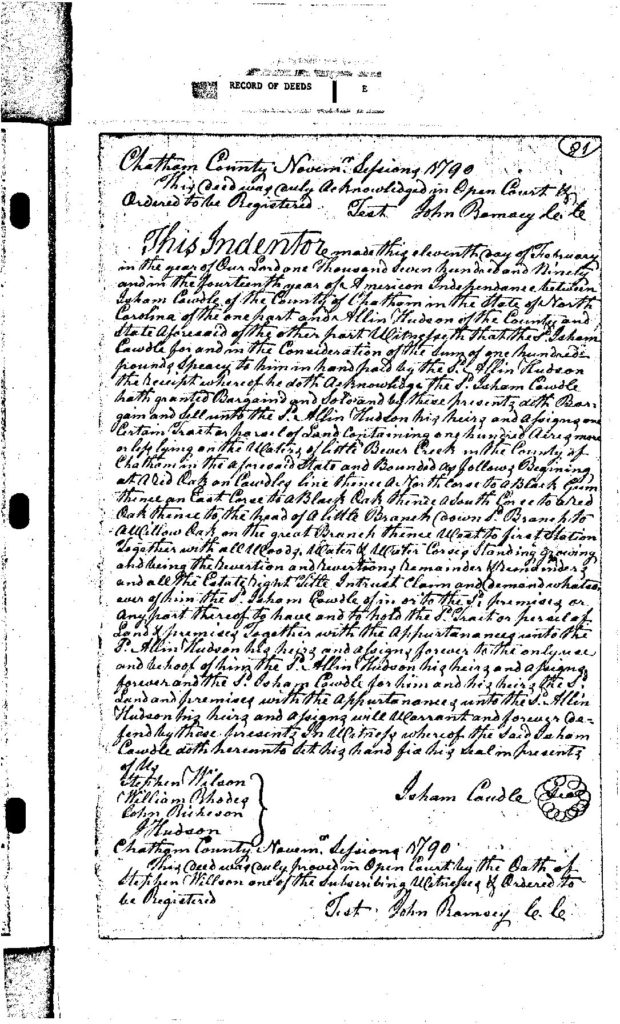 RECORD OF DEEDS
E
91
Chatham County Novemr. Sessions 1790
This Deed was duly Acknowledged in Open Court &
Ordered to be Registered Test John Ramsey C.C
This Indentore made this eleventh day of February
in the year of Our Lord one Thousand Seven hundred and Ninety
and in the fourteenth year of American Independance between
Isham Cawdle of the County of Chatham in the State of North
Carolina of the one part and Allin Hudson of the County and
State aforesaid of the other part Witnesseth that the Sd. Isham
Cawdle for and in the Consideration of the Sum of one hundred
pounds Speacy to him in hand paid by the Sd. Allin Hudson
the Receipt whereof he doth Acknowledge the Sd. Isham Cawdle
hath granted Bargaind and Sold and by these presents doth Bar-
gain and Sell unto the Sd. Allin Hudson his heirs and Assigns one
Certain Tract or parsel of Land Containing one hundred Acres more
or less lying on the Waters of Little Bever Creek in the County of
Chatham in the aforesaid State and Bounded as follows Begining
at A Red Oak on Cawdles line thence A North Corse to A Black Gum
thence an East Corse to A Black Oak thence A South Corse to A red
Oak thence to the head of A little Branch down Sd. Branch to
A Willow Oak on the great Branch thence West to first Station
Together with all Woods, Water & Water Corses Standing growing
and being the Revertion and revertions Remainder & Remainders
and all the Estate Right Title Intrust Claim and demand whatso
ever of him the Sd. Isham Cawdle of in or to the Sd. premises or
any part thereof to have and to hold the Sd. Tract or persel of
Land & premises Together with the Appurtanances unto the
Sd. Allin Hudson his heirs and assigns forever to the only use
and behoof of him the Sd. Allin Hudson his heirs and assigns
forever and the Sd. Isham Cawdle for him and his heirs the Sd.
Land and premises with the Appurtanances unto the Sd. Allin
Hudson his heirs and assigns will Warrant and forever De-
fend by these presents In Witness whereof the Said Isham
Cawdle doth hereunto set his hand fix his Seal in presents
of Us
Stephen Wilson
William Rhodes
John Richeson
J Hudson
Isham Cawdle Seal
Chatham County Novemr. Sessions 1790
This Deed was duly proved in Open Court by the Oath of
Stephen Willson one of the Subscribing Witnesses & Ordered to
be Registered
Test John Ramsey C. C.